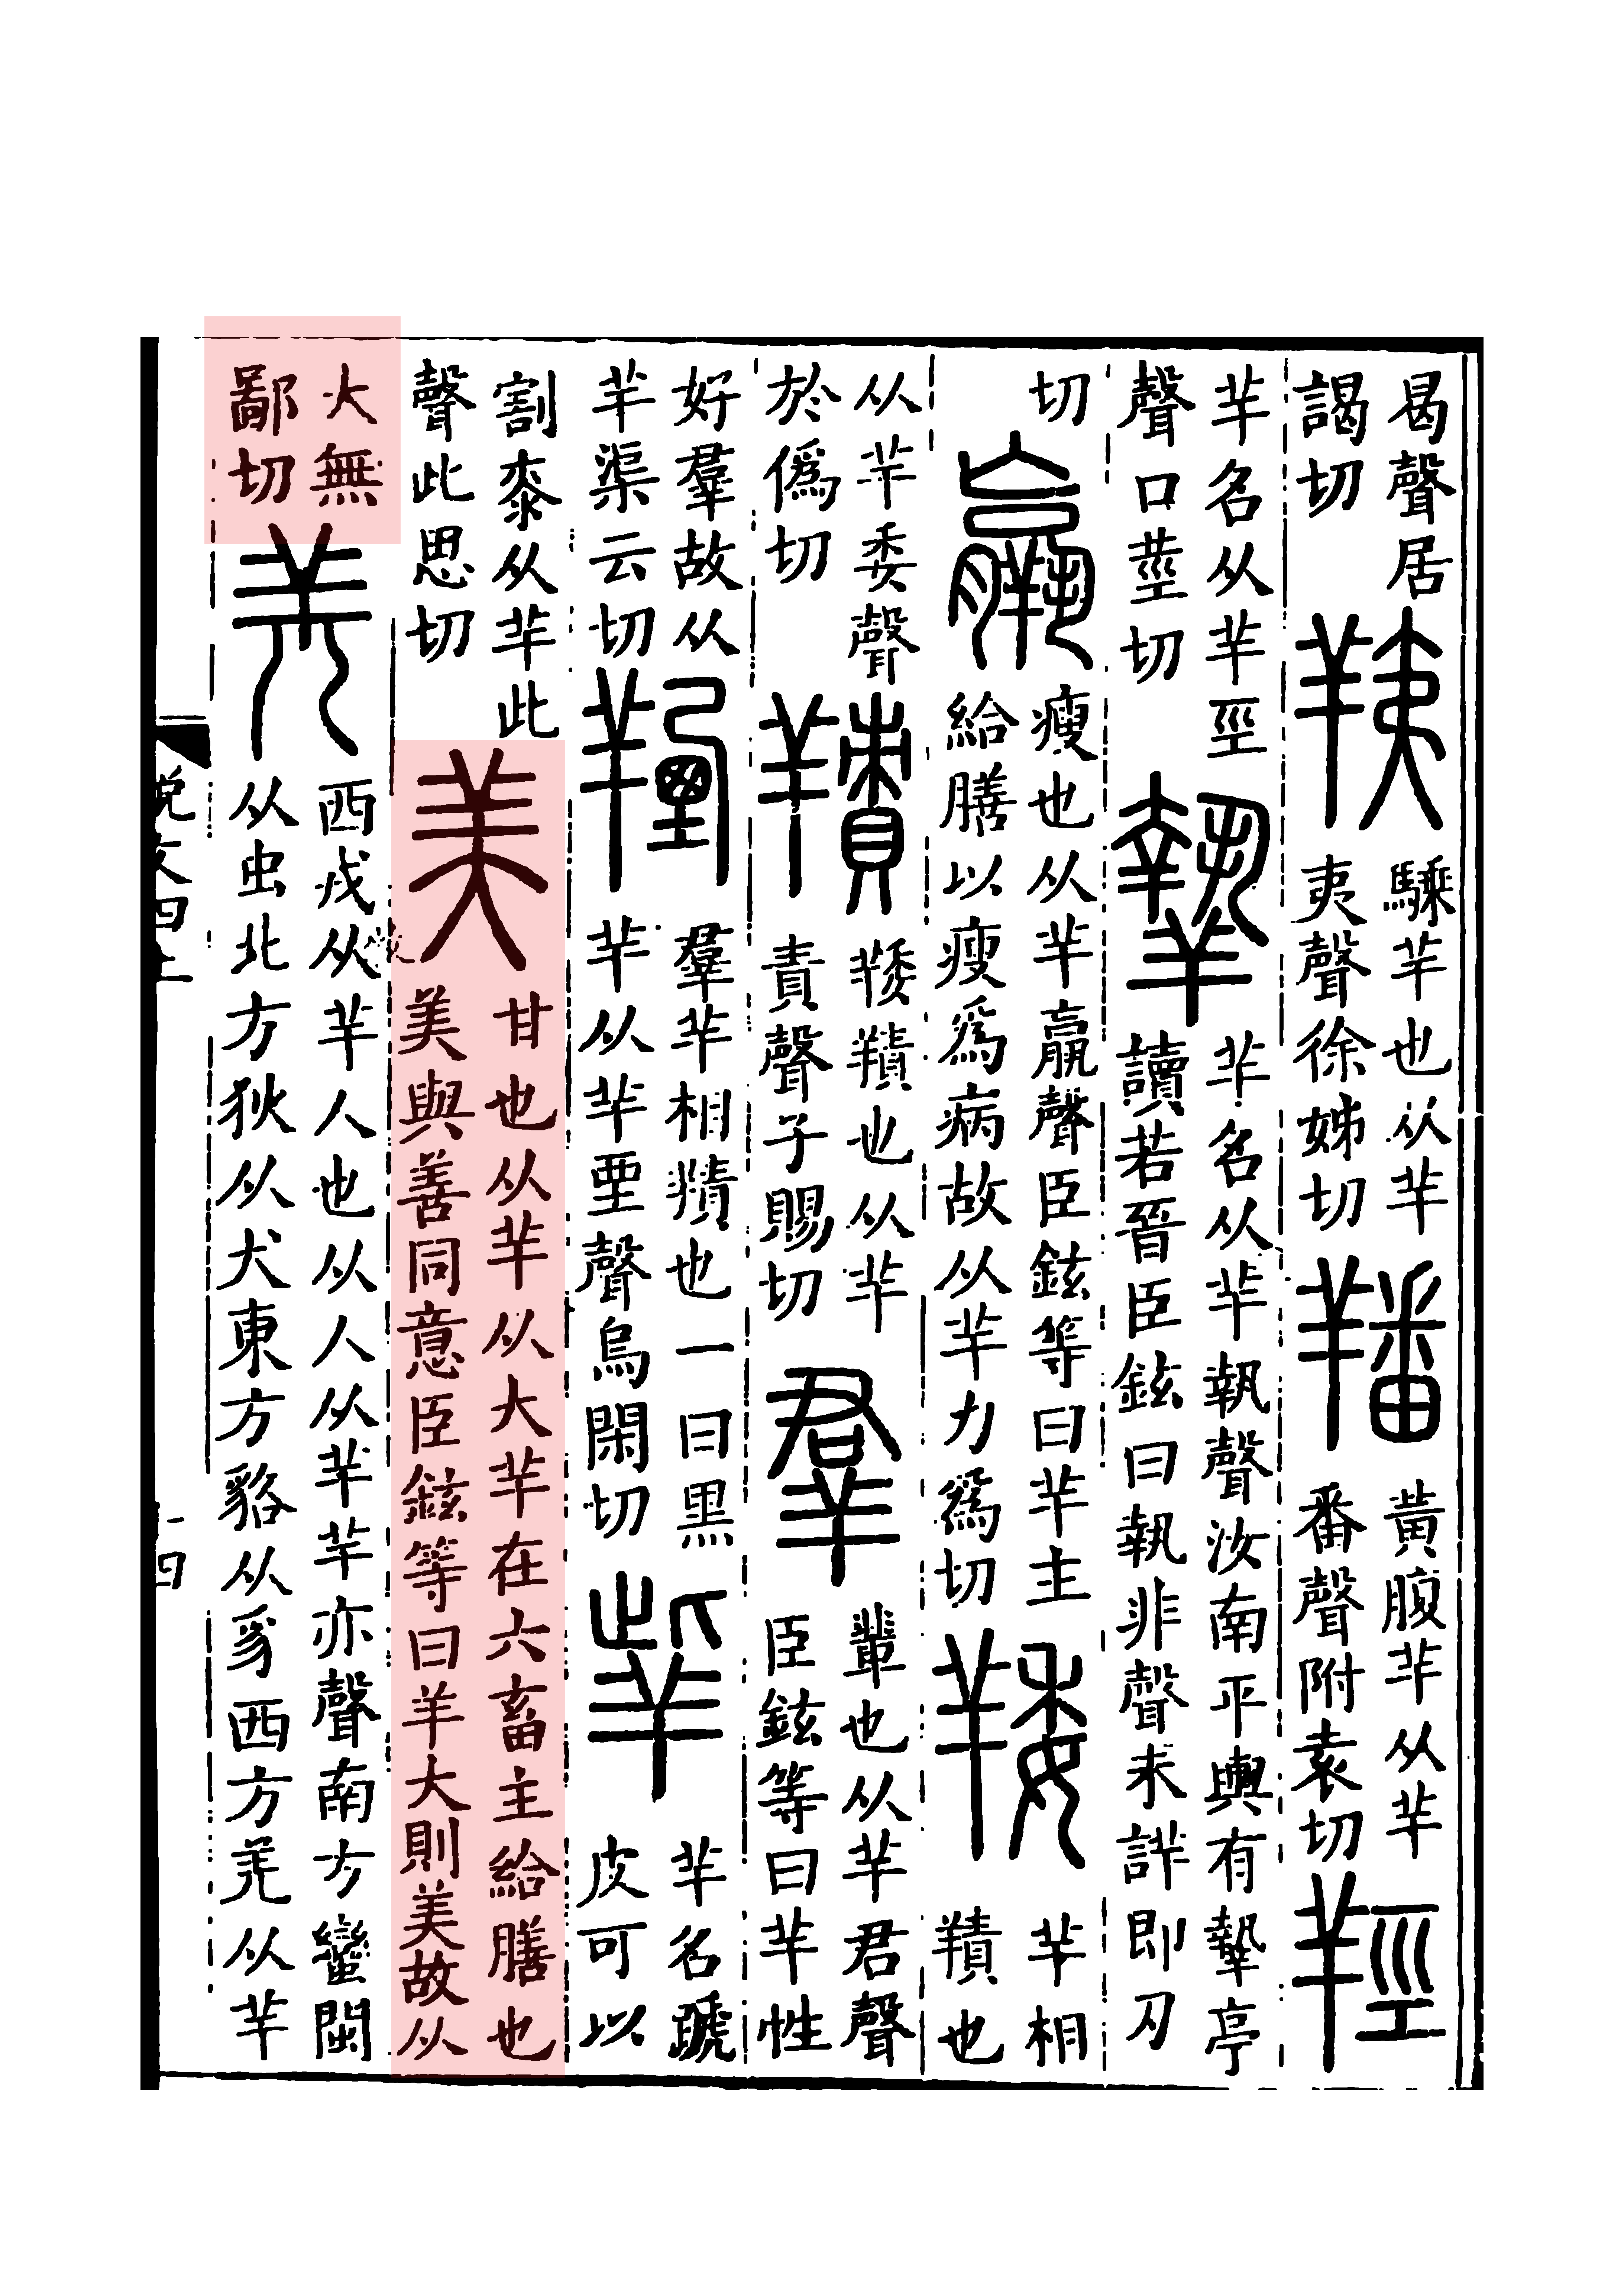 曷聲居
謁切
羠
騬羊也从羊
夷聲徐姊切
羳
黃腹羊从羊
番聲附袁切
羥
羊名从羊巠
聲口莖切
𦎷
羊名从羊執聲汝南平輿有𦎷亭
讀若晉臣鉉曰執非聲未詳即刃切
羸
瘦也从羊𦝠聲臣鉉等曰羊主
給膳以瘦爲病故从羊力爲切
䍴
羊相
𦎣也
从羊委聲
於僞切
𦎣
䍴𦎣也从羊
責聲子賜切
羣
輩也从羊君聲
臣鉉等曰羊性
好羣故从
羊渠云切
羣羊相𦎣也一曰黑
羊从羊垔聲烏閑切
羊名蹏
皮可以
割桼从羊此
聲此思切
美
甘也从羊从大羊在六畜主給膳也
美與善同意臣鉉等曰羊大則美故从
大無
鄙切
羌
西戎从羊人也从人从羊羊亦聲南方蠻閩
从虫北方狄从犬東方貉从豸西方羌从羊
說文四上
十四